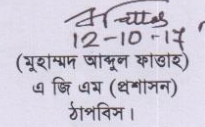 12-10-17
(মুহাম্মদ আব্দুল ফাত্তাহ)
এ জি এম (প্রশাসন)
ঠাপবিস।